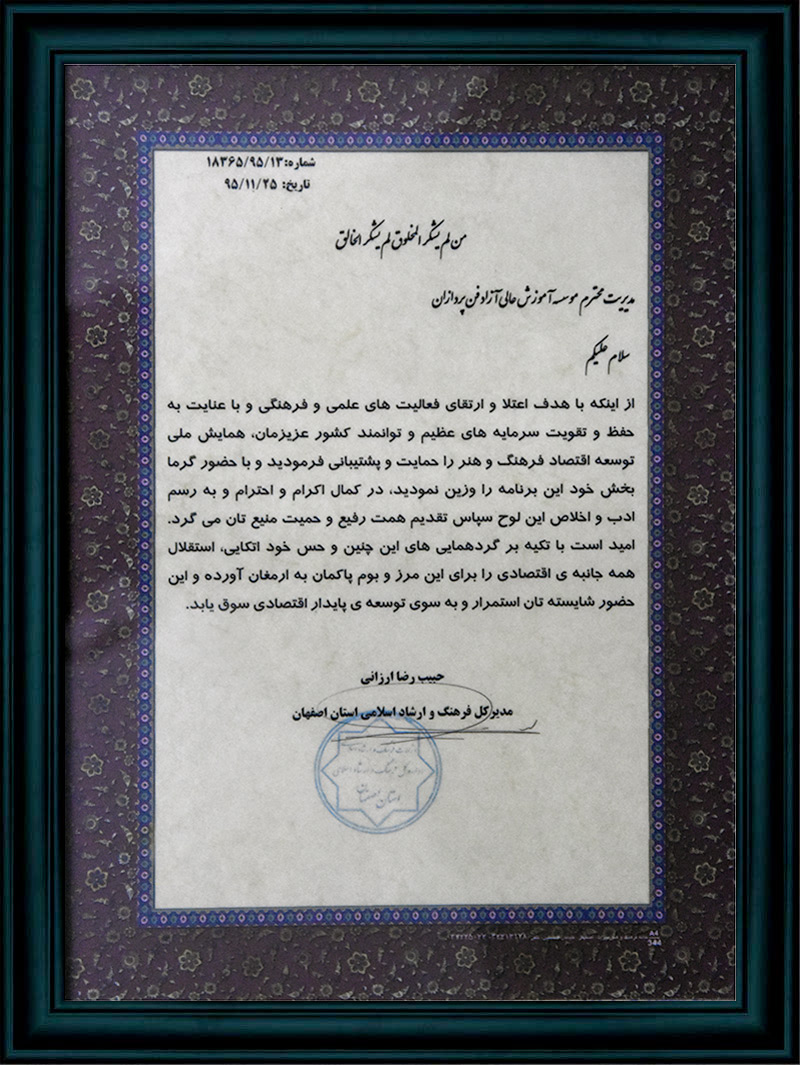 شماره: ۱۸۳۶۵/۹۵/۱۳
تاریخ: ۹۵/۱۱/۲۵
من لم یشکر المخلوق لم یشکر الخالق
مدیریت محترم موسسه آموزش عالی آزاد فن پردازان
سلام علیکم
از اینکه با هدف اعتلا و ارتقای فعالیت های علمی و فرهنگی و با عنایت به
حفظ و تقویت سرمایه های عظیم و توانمند کشور عزیزمان، همایش ملی
توسعه اقتصاد فرهنگ و هنر را حمایت و پشتیبانی فرمودید و با حضور گرما
بخش خود این برنامه را وزین نمودید، در کمال اکرام و احترام و به رسم
ادب و اخلاص این لوح سپاس تقدیم همت رفیع و حمیت منیع تان می گرد.
امید است با تکیه بر گردهمایی های این چنین و حس خود اتکایی، استقلال
همه جانبه ی اقتصادی را برای این مرز و بوم پاکمان به ارمغان آورده و این
حضور شایسته تان استمرار و به سوی توسعه ی پایدار اقتصادی سوق یابد.
حبیب رضا ارزانی
مدیر کل فرهنگ و ارشاد اسلامی استان اصفهان
استان اصفهان
A4
544